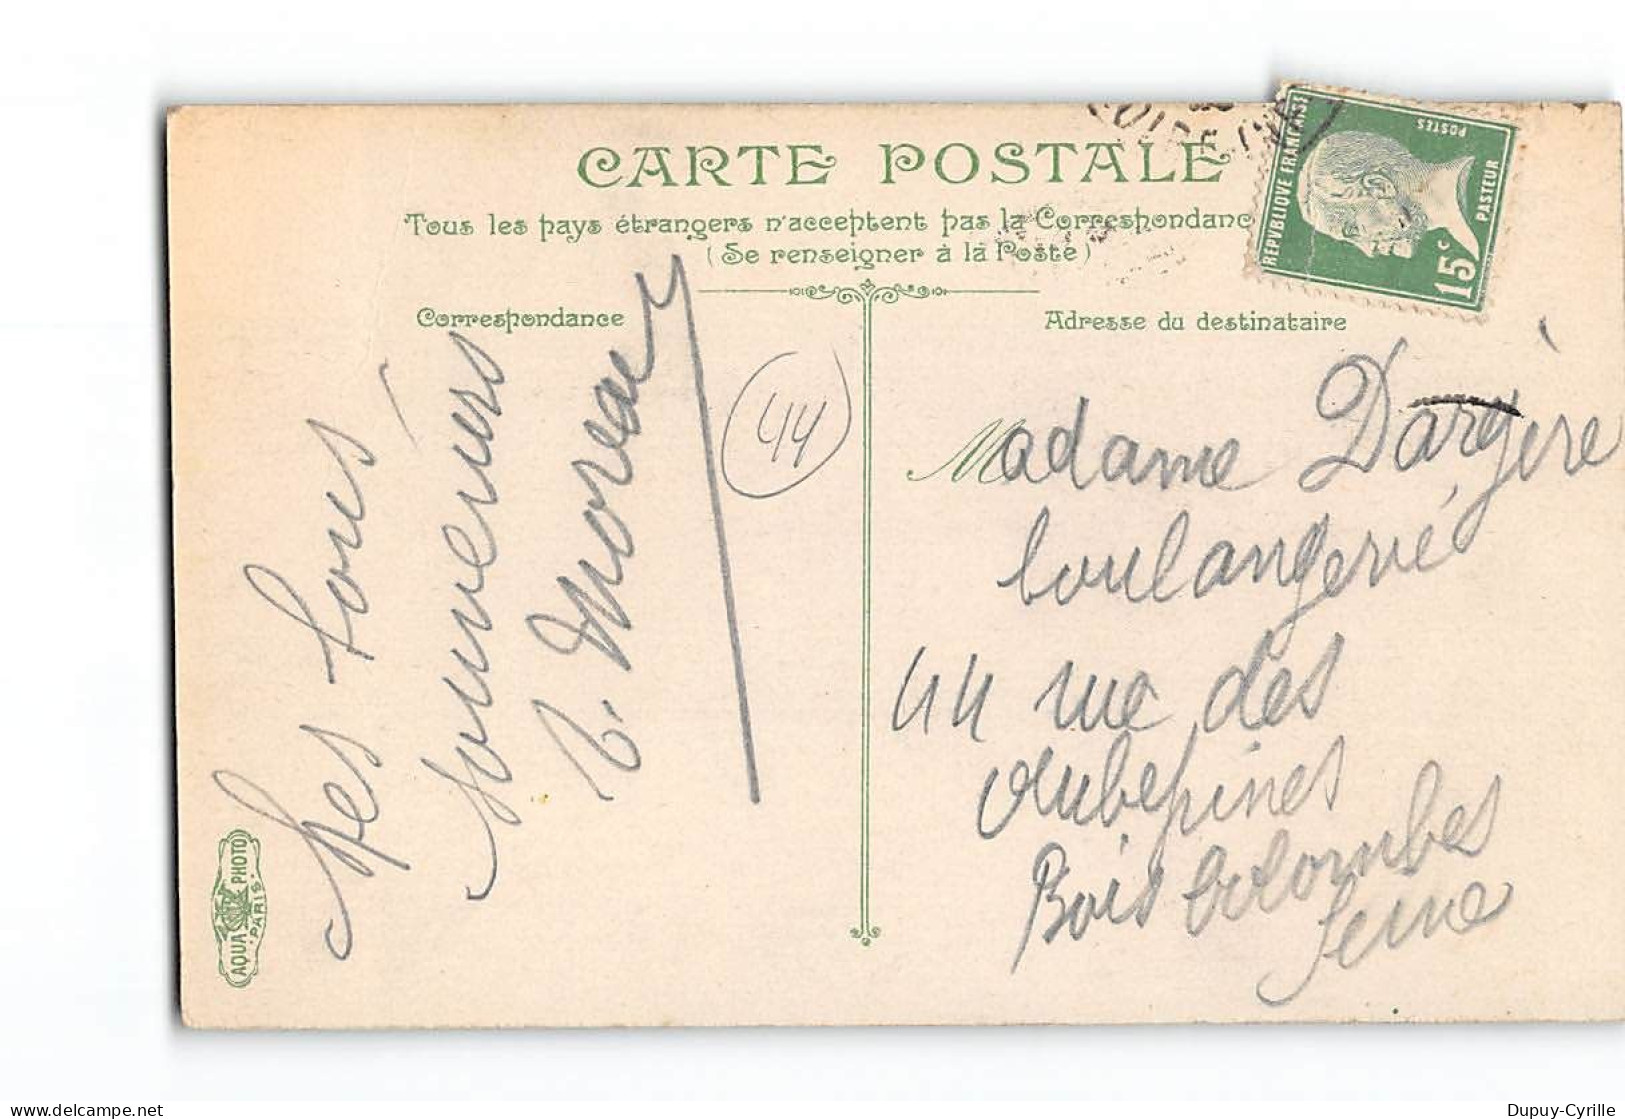 CARTE POSTALE
Tous les pays étrangers n'acceptent pas la Correspondanc
(Se renseigner à la Poste)
Correspondance
Adresse du destinataire
RÉPUBLIQUE FRANÇAISE
POSTES
PASTEUR
15c
44
bons
souvenirs
Moreau
Madame Dargère
boulangerie
44 rue des
Aubepines
Bois Colombes
Seine
AQUA PHOTO
PARIS
delcampe.net
Dupuy-Cyrille